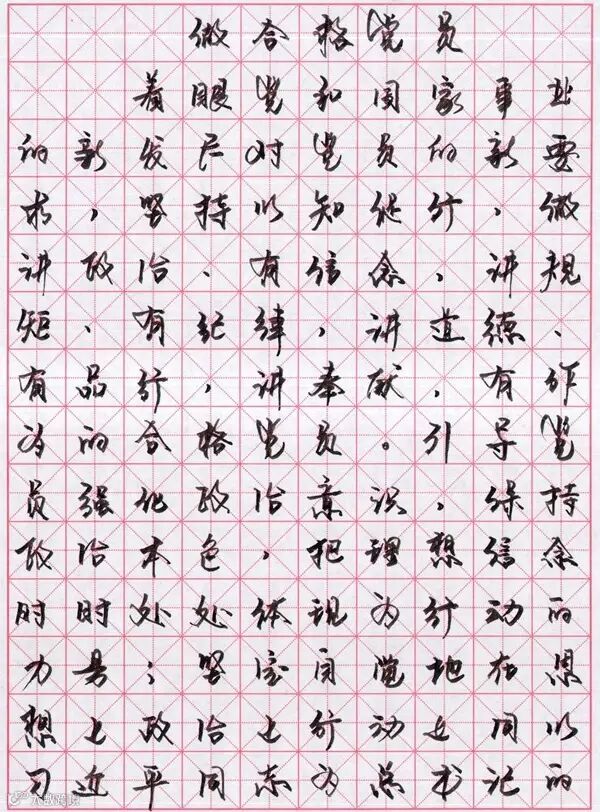 做合格党员
着眼党和国家事业
的新发展对党员的新要
求，坚持以知促行，做
讲政治、有信念，讲规
矩、有纪律，讲道德、
有品行，讲奉献，有作
为的合格党员。引导党
员强化政治意识，保持
政治本色，把理想信念
时时处处体现为行动的
力量；坚定自觉地在思
想上政治上行动上同以
习近平同志为总书记的